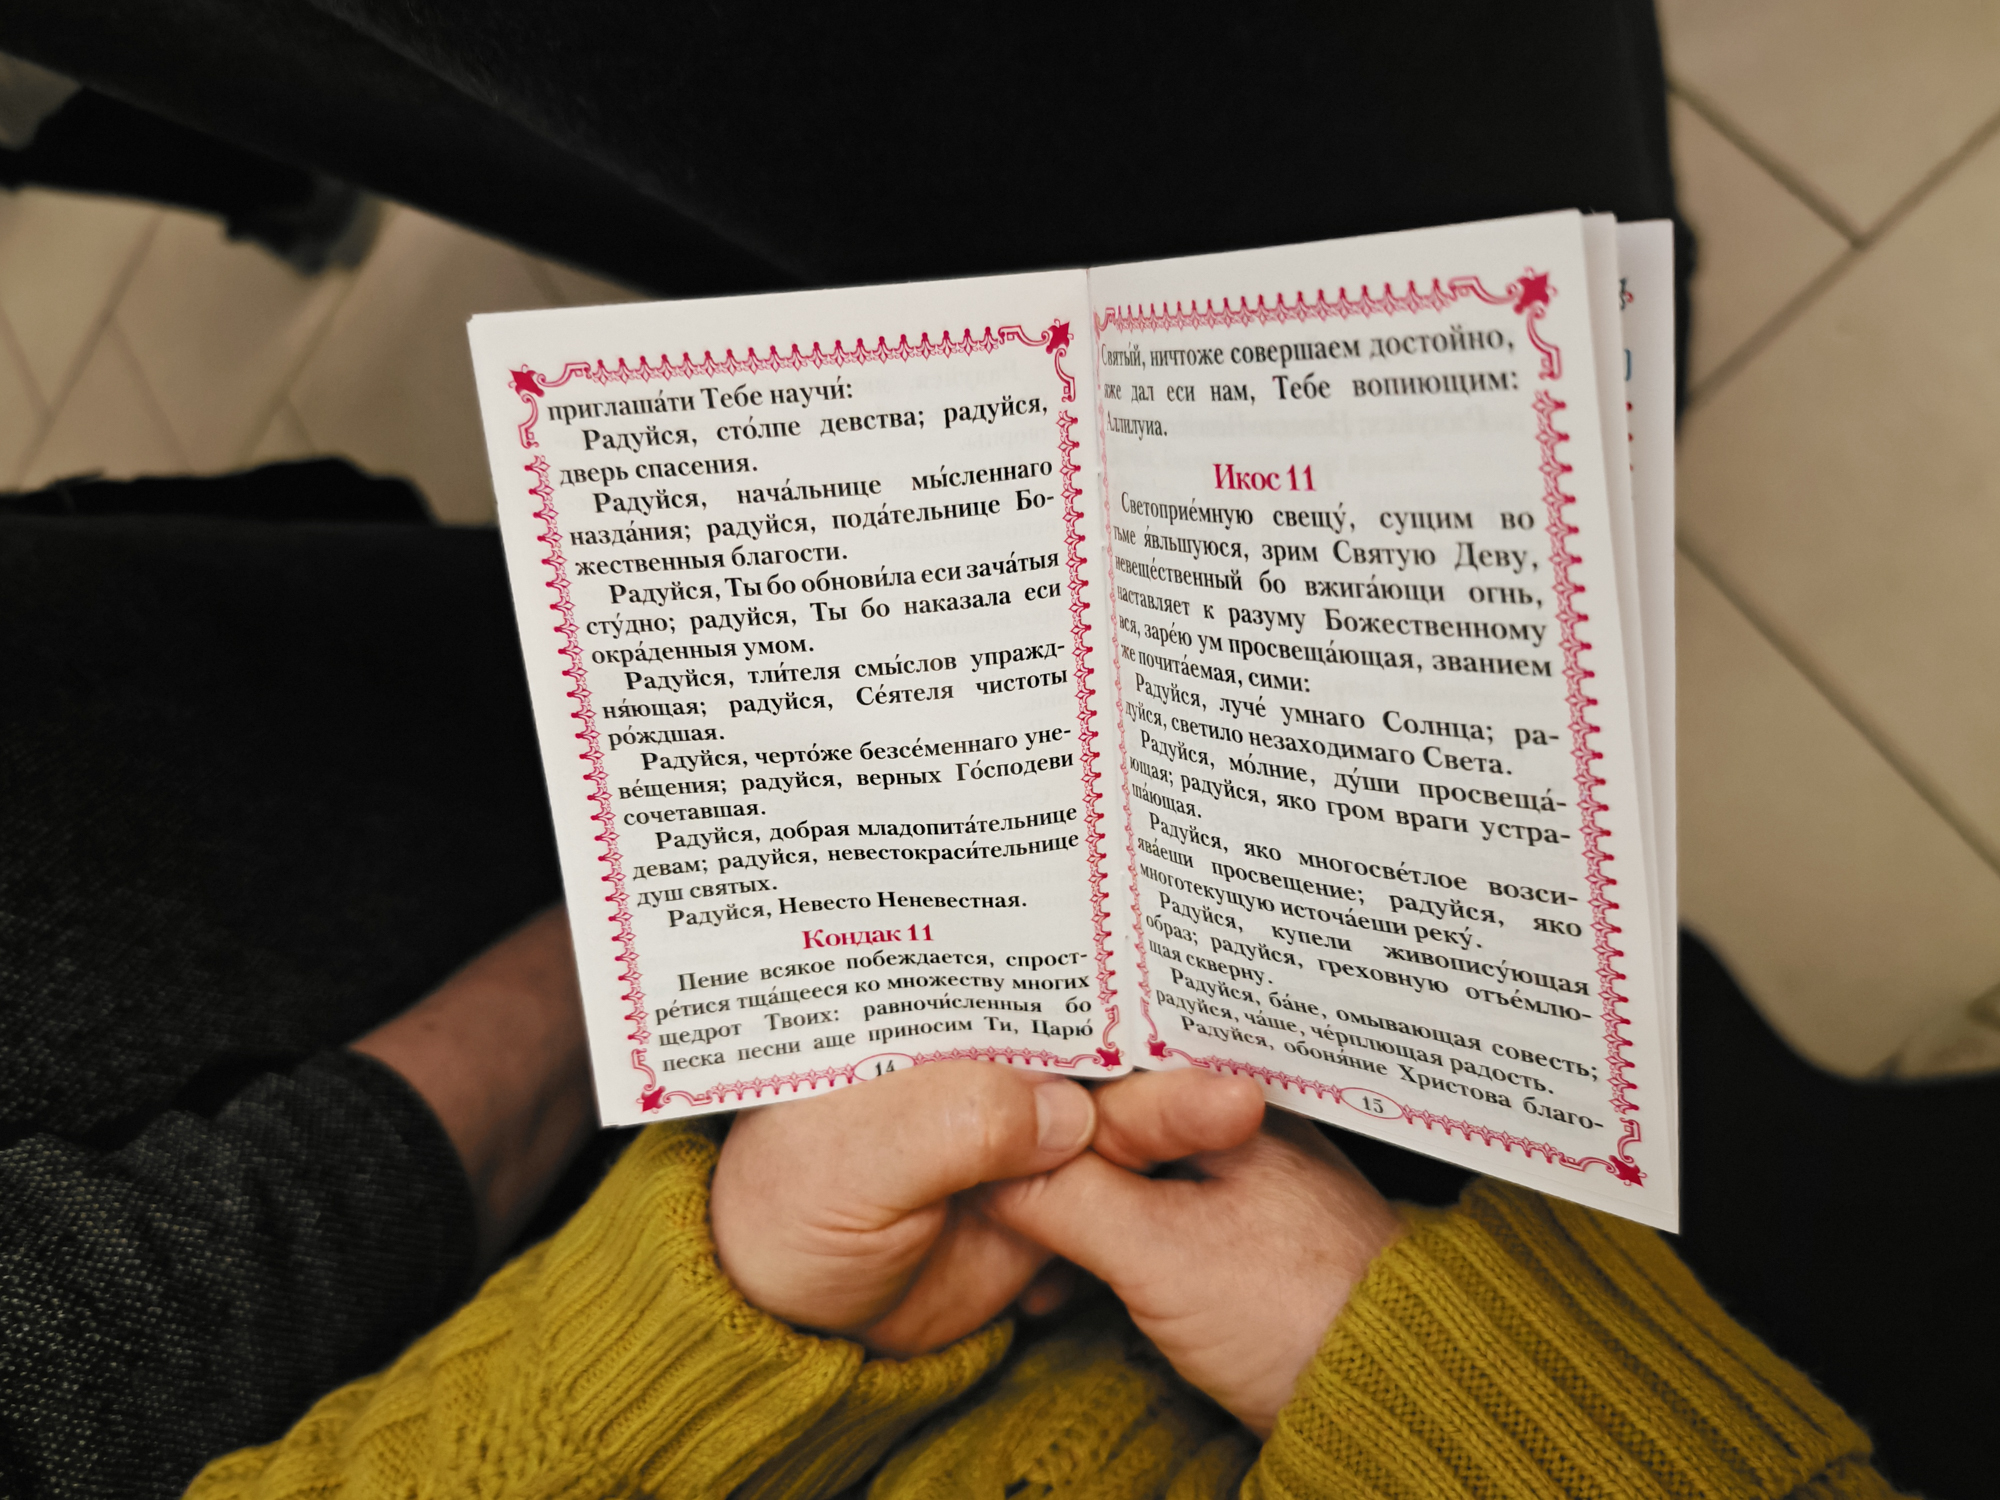 приглаша́ти Тебе научи́:
Радуйся, сто́лпе девства; радуйся,
дверь спасения.
Радуйся, нача́льнице мы́сленнаго
назда́ния; радуйся, пода́тельнице Бо-
жественныя благости.
Радуйся, Ты бо обнови́ла еси зача́тыя
сту́дно; радуйся, Ты бо наказала еси
окра́денныя умом.
Радуйся, тли́теля смы́слов упражд-
ня́ющая; радуйся, Се́ятеля чистоты
ро́ждшая.
Радуйся, черто́же безсе́меннаго уне-
ве́щения; радуйся, верных Го́сподеви
сочетавшая.
Радуйся, добрая младопита́тельнице
девам; радуйся, невестокраси́тельнице
душ святых.
Радуйся, Невесто Неневестная.
Кондак 11
Пение всякое побеждается, спрост-
ре́тися тща́щееся ко множеству многих
щедрот Твоих: равночи́сленныя бо
песка песни аще приносим Ти, Царю́
14
Святы́й, ничтоже совершаем достойно,
яже дал еси нам, Тебе вопиющим:
Аллилуиа.
Икос 11
Светоприе́мную свещу́, сущим во
тьме я́вльшуюся, зрим Святую Деву,
невеще́ственный бо вжига́ющи огнь,
наставляет к разуму Божественному
вся, заре́ю ум просвеща́ющая, званием
же почита́емая, сими:
Радуйся, луче́ умнаго Солнца; ра-
дуйся, светило незаходимаго Света.
Радуйся, мо́лние, ду́ши просвеща́-
ющая; радуйся, яко гром враги устра-
ша́ющая.
Радуйся, яко многосве́тлое возси-
ява́еши просвещение; радуйся, яко
многотекущую источа́еши реку́.
Радуйся, купели живопису́ющая
образ; радуйся, греховную отъе́млю-
щая скверну.
Радуйся, ба́не, омывающая совесть;
радуйся, ча́ше, че́рплющая радость.
Радуйся, обоня́ние Христова благо-
15